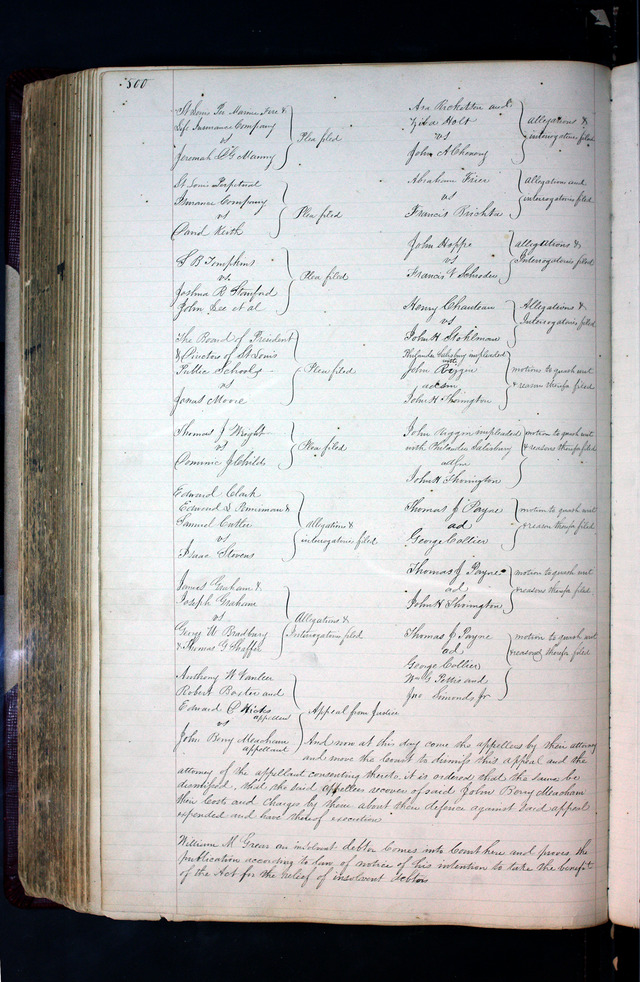 500
St Louis Per Marine Fire &
Life Insurance Company
vs
Jeremiah
Plea filed
St Louis Perpetual
Insurance Company
vs
David Keith
Plea filed
S B Tompkins
vs
Joshua B Stanford
John Lee et al
Plea filed
The Board of President
& Directors of St Louis
Public Schools
vs
Jonas Moore
Plea filed
Thomas J Wright
vs
Dominic J Childs
Plea filed
Edward Clark
Edward S
Samuel Cutler
vs
Isaac Stevens
Allegations &
interrogatories filed
James Graham &
Joseph Graham
vs
George W Bradbury
& Thomas G Shaffer
Allegations &
Interrogatories filed
Anthony W Vanleer
Robert Baxter and
Edward D Hicks
appellees
vs
John Berry Meacham
appellant
Appeal from Justice
And now at this day come the appellees by their attorney
and move the Court to dismiss this appeal and the
attorney of the appellant consenting thereto it is ordered that the same be
dismissed, that the said appellees recover of said John Berry Meacham
their Costs and Charges by them about their defence against said appeal
expended and have thereof execution
William M Grear an insolvent debtor Comes into Court here and proves the
publication according to law of notice of his intention to take the benefit
of the Act for the relief of insolvent debtors
Asa and
Holt
vs
John A Chenowy
allegations &
interrogatories filed
Abraham Frier
vs
Francis
allegations and
interrogatories filed
John Hoppe
vs
Francis V Schrader
allegations &
Interrogatories filed
Henry Chouteau
vs
John H Stohlman
Allegations &
Interrogatories filed
Philander Salisbury impleaded
with
John Riggin
adsm
John H Thorington
motions to quash writ
& reasons therefor filed
John Riggin impleaded
with Philander Salisbury
adsm
John H Thorington
motion to quash writ
& reasons therefor filed
Thomas J Payne
ad
George Collier
motion to quash writ
& reason therefor filed
Thomas J Payne
ad
John H Thorington
motion to quash writ
& reasons therefor filed
Thomas J Payne
ad
George Collier
Wm G Pettis and
Jno Simonds Jr
motion to quash writ
& reasons therefor filed